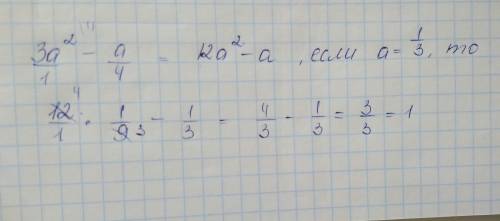 3a²/1 - a/4 = 12a² - a, если a = 1/3, то
12⁴/1 · 1/9 3 - 1/3 = 4/3 - 1/3 = 3/3 = 1